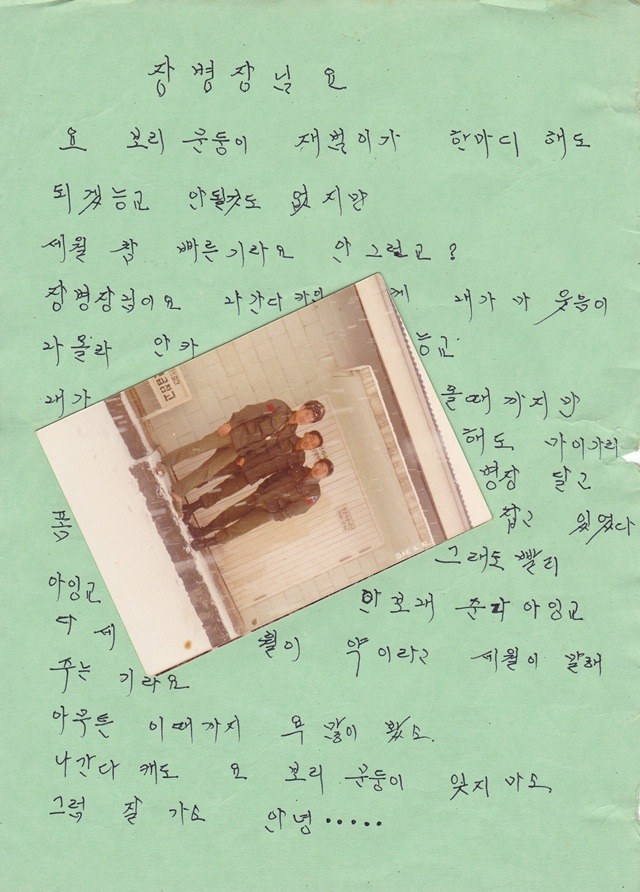 장병장님요
요 보리 문둥이 재벌이가 한마디 해도
되겠능교 안될것도 없지만
세월 참 빠른기라요 안그렇교?
장병장님이요 나간다 카 께 내가 마 웃음이
나올라 안카 능교
내가 올때까지만
해도 가이가리
병장 달고
폼 잡고 있었다
그래도 빨리
아잉교 안보내 준다 아잉교
다 세 월이 약이라고 세월이 말해
주는 기라요
아무튼 이때까지 욕 많이 봤소.
나간다 캐도 요 보리 문둥이 잊지마소
그럼 잘 가소 안녕.....